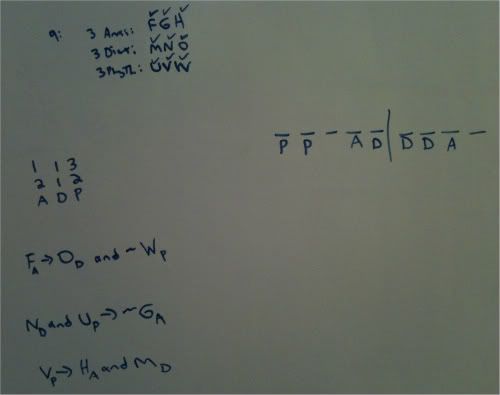 9: 3 Anas: F G H
3 Dist: M N O
3 Psych: U V W
P P A D D D A
1 1 3
2 1 2
A D P
F_A → O_D and ~W_P
N_D and U_P → ~G_A
V_P → H_A and M_D